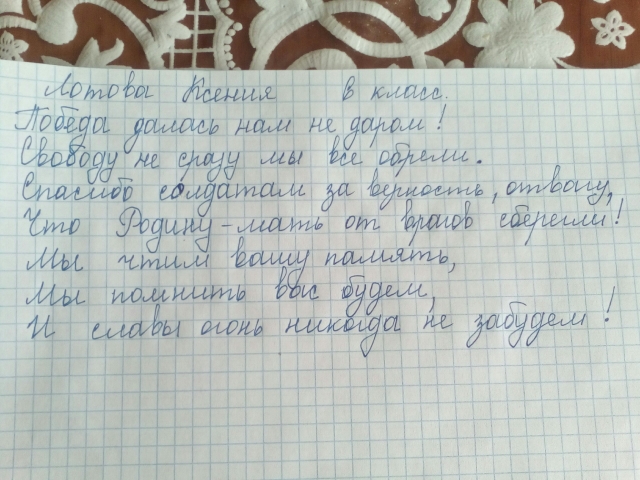 Лотова Ксения 8 класс.
Победа далась нам не даром!
Свободу не сразу мы все обрели.
Спасибо солдатам за верность, отвагу,
Что Родину-мать от врагов сберегли!
Мы чтим вашу память,
Мы помнить вас будем,
И славы огонь никогда не забудем!